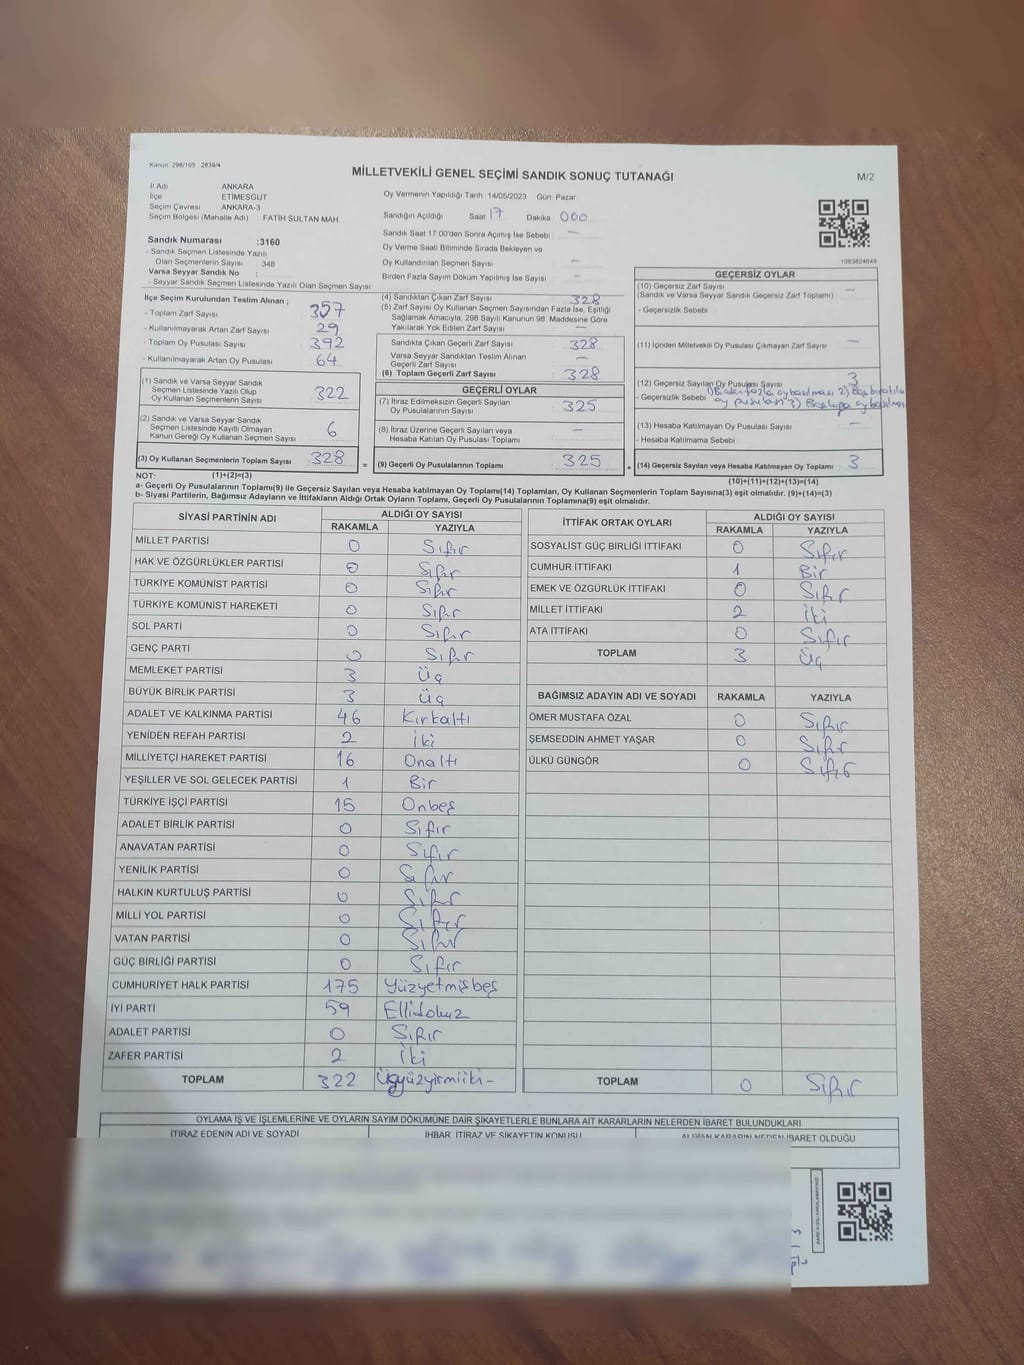 Kanun: 298/105 2839/4
MİLLETVEKİLİ GENEL SEÇİMİ SANDIK SONUÇ TUTANAĞI
M/2
İl Adı : ANKARA
İlçe : ETİMESGUT
Seçim Çevresi : ANKARA-3
Seçim Bölgesi (Mahalle Adı) : FATİH SULTAN MAH.
Sandık Numarası :3160
- Sandık Seçmen Listesinde Yazılı
Olan Seçmenlerin Sayısı : 348
Varsa Seyyar Sandık No :
- Seyyar Sandık Seçmen Listesinde Yazılı Olan Seçmen Sayısı :
Oy Vermenin Yapıldığı Tarih :14/05/2023 Gün :Pazar
Sandığın Açıldığı Saat : 17 Dakika : 000
Sandık Saat 17.00'den Sonra Açılmış İse Sebebi : —
Oy Verme Saati Bitiminde Sırada Bekleyen ve
Oy Kullandırılan Seçmen Sayısı : —
Birden Fazla Sayım Döküm Yapılmış İse Sayısı : —
1083824648
İlçe Seçim Kurulundan Teslim Alınan ;
- Toplam Zarf Sayısı : 357
- Kullanılmayarak Artan Zarf Sayısı : 29
- Toplam Oy Pusulası Sayısı : 392
- Kullanılmayarak Artan Oy Pusulası : 64
(1) Sandık ve Varsa Seyyar Sandık
Seçmen Listesinde Yazılı Olup
Oy Kullanan Seçmenlerin Sayısı 322
(2) Sandık ve Varsa Seyyar Sandık
Seçmen Listesinde Kayıtlı Olmayan
Kanun Gereği Oy Kullanan Seçmen Sayısı 6
(3) Oy Kullanan Seçmenlerin Toplam Sayısı 328
(4) Sandıktan Çıkan Zarf Sayısı 328
(5) Zarf Sayısı Oy Kullanan Seçmen Sayısından Fazla İse, Eşitliği
Sağlamak Amacıyla, 298 Sayılı Kanunun 98. Maddesine Göre
Yakılarak Yok Edilen Zarf Sayısı : —
Sandıkta Çıkan Geçerli Zarf Sayısı : 328
Varsa Seyyar Sandıktan Teslim Alınan
Geçerli Zarf Sayısı : —
(6) Toplam Geçerli Zarf Sayısı : 328
GEÇERLİ OYLAR
(7) İtiraz Edilmeksizin Geçerli Sayılan
Oy Pusulalarının Sayısı : 325
(8) İtiraz Üzerine Geçerli Sayılan veya
Hesaba Katılan Oy Pusulası Toplamı : —
= (9) Geçerli Oy Pusulalarının Toplamı : 325
GEÇERSİZ OYLAR
(10) Geçersiz Zarf Sayısı : —
(Sandık ve Varsa Seyyar Sandık Geçersiz Zarf Toplamı)
- Geçersizlik Sebebi :
(11) İçinden Milletvekili Oy Pusulası Çıkmayan Zarf Sayısı : —
(12) Geçersiz Sayılan Oy Pusulası Sayısı : 3
- Geçersizlik Sebebi : 1) Birden fazla oy basılması 2) Boş
oy pusulası 3) oy basılması
(13) Hesaba Katılmayan Oy Pusulası Sayısı : —
- Hesaba Katılmama Sebebi :
+ (14) Geçersiz Sayılan veya Hesaba Katılmayan Oy Toplamı : 3
NOT: (1)+(2)=(3)
(10)+(11)+(12)+(13)=(14)
a- Geçerli Oy Pusulalarının Toplamı(9) ile Geçersiz Sayılan veya Hesaba katılmayan Oy Toplamı(14) Toplamları, Oy Kullanan Seçmenlerin Toplam Sayısına(3) eşit olmalıdır. (9)+(14)=(3)
b- Siyasi Partilerin, Bağımsız Adayların ve İttifakların Aldığı Ortak Oyların Toplamı, Geçerli Oy Pusulalarının Toplamına(9) eşit olmalıdır.
SİYASİ PARTİNİN ADI ALDIĞI OY SAYISI
RAKAMLA YAZIYLA
MİLLET PARTİSİ 0 Sıfır
HAK VE ÖZGÜRLÜKLER PARTİSİ 0 Sıfır
TÜRKİYE KOMÜNİST PARTİSİ 0 Sıfır
TÜRKİYE KOMÜNİST HAREKETİ 0 Sıfır
SOL PARTİ 0 Sıfır
GENÇ PARTİ 0 Sıfır
MEMLEKET PARTİSİ 3 Üç
BÜYÜK BİRLİK PARTİSİ 3 Üç
ADALET VE KALKINMA PARTİSİ 46 Kırkaltı
YENİDEN REFAH PARTİSİ 2 İki
MİLLİYETÇİ HAREKET PARTİSİ 16 Onaltı
YEŞİLLER VE SOL GELECEK PARTİSİ 1 Bir
TÜRKİYE İŞÇİ PARTİSİ 15 Onbeş
ADALET BİRLİK PARTİSİ 0 Sıfır
ANAVATAN PARTİSİ 0 Sıfır
YENİLİK PARTİSİ 0 Sıfır
HALKIN KURTULUŞ PARTİSİ 0 Sıfır
MİLLİ YOL PARTİSİ 0 Sıfır
VATAN PARTİSİ 0 Sıfır
GÜÇ BİRLİĞİ PARTİSİ 0 Sıfır
CUMHURİYET HALK PARTİSİ 175 Yüzyetmişbeş
İYİ PARTİ 59 Ellidokuz
ADALET PARTİSİ 0 Sıfır
ZAFER PARTİSİ 2 İki
TOPLAM 322 Üçyüzyirmiiki-
İTTİFAK ORTAK OYLARI ALDIĞI OY SAYISI
RAKAMLA YAZIYLA
SOSYALİST GÜÇ BİRLİĞİ İTTİFAKI 0 Sıfır
CUMHUR İTTİFAKI 1 Bir
EMEK VE ÖZGÜRLÜK İTTİFAKI 0 Sıfır
MİLLET İTTİFAKI 2 İki
ATA İTTİFAKI 0 Sıfır
TOPLAM 3 Üç
BAĞIMSIZ ADAYIN ADI VE SOYADI RAKAMLA YAZIYLA
ÖMER MUSTAFA ÖZAL 0 Sıfır
ŞEMSEDDİN AHMET YAŞAR 0 Sıfır
ÜLKÜ GÜNGÖR 0 Sıfır
TOPLAM 0 Sıfır
OYLAMA İŞ VE İŞLEMLERİNE VE OYLARIN SAYIM DÖKÜMÜNE DAİR ŞİKAYETLERLE BUNLARA AİT KARARLARIN NELERDEN İBARET BULUNDUKLARI
İTİRAZ EDENİN ADI VE SOYADI İHBAR, İTİRAZ VE ŞİKAYETİN KONUSU ALINAN KARARIN NEDEN İBARET OLDUĞU